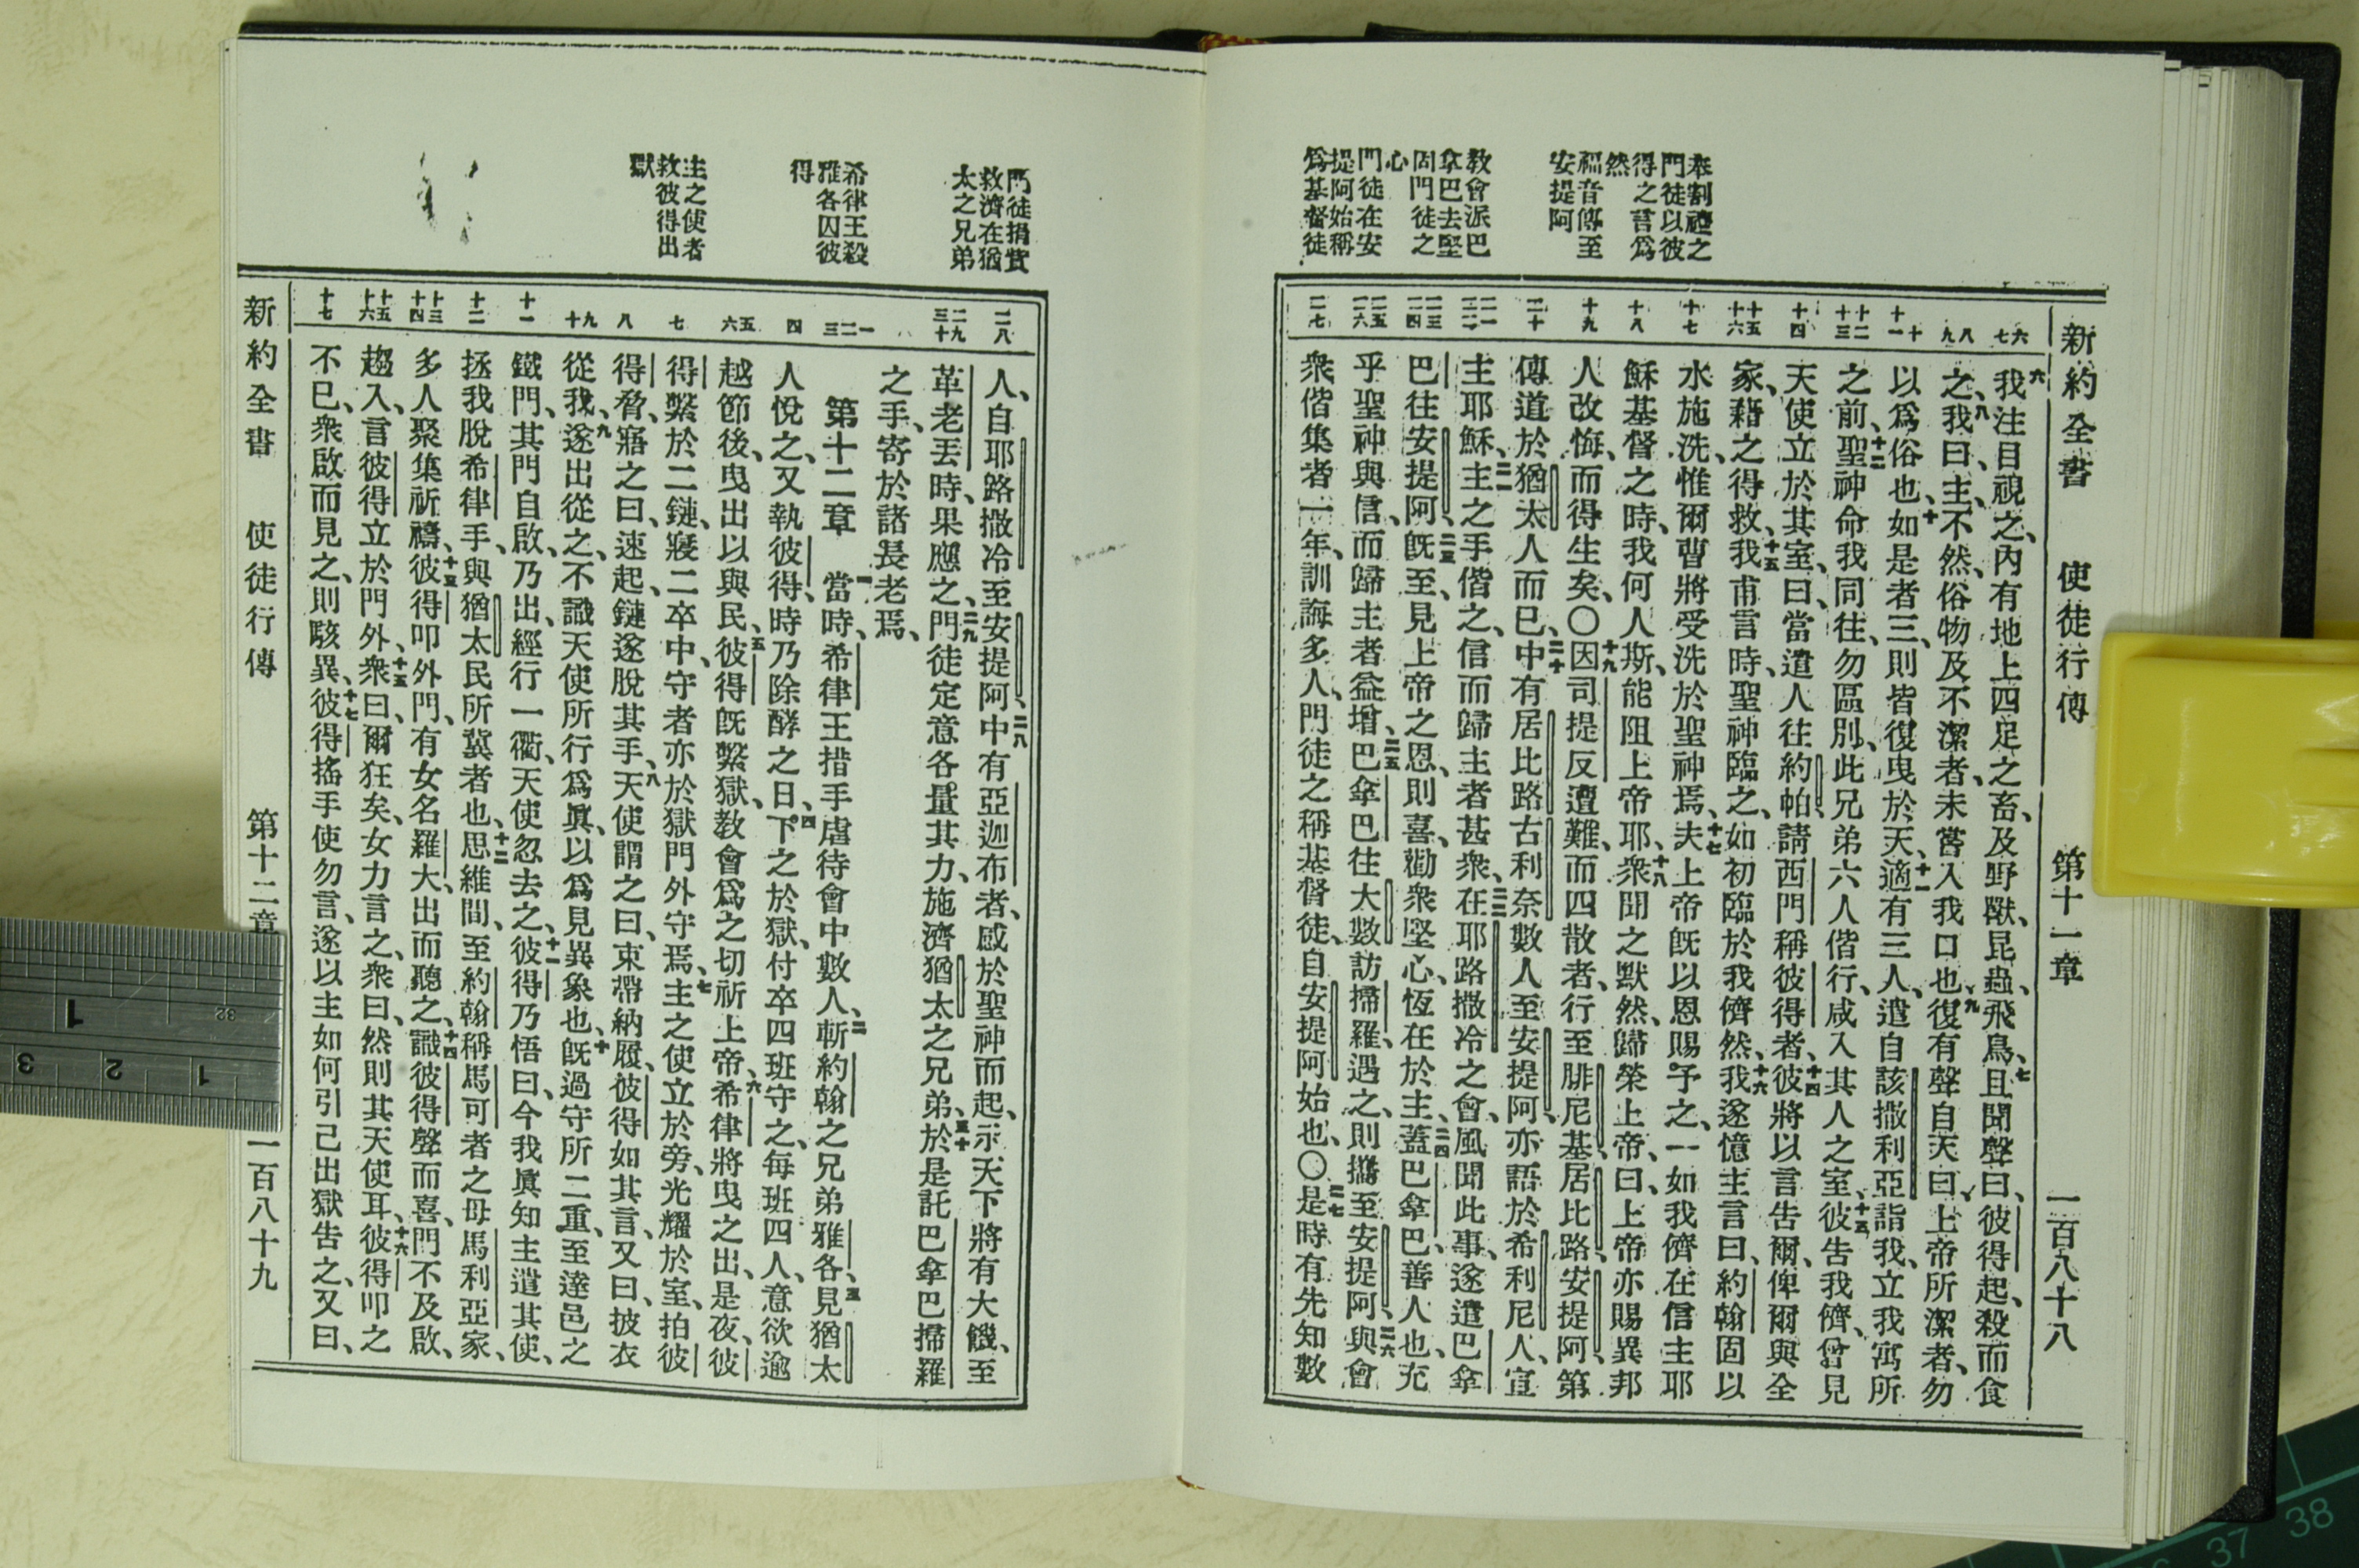 新約全書 使徒行傳 第十一章 一百八十八
奉割禮之
門徒以彼
得之言爲
然
福音傳至
安提阿
教會派巴
拿巴去堅
固門徒之
心
門徒在安
提阿始稱
爲基督徒
六 七 八 九 十 十一 十二 十三 十四 十五 十六 十七 十八 十九 二十 二一 二二 二三 二四 二五 二六 二七
六我注目視之、內有地上四足之畜、及野獸、昆蟲、飛鳥、七且聞聲曰、彼得起、殺而食
之、八我曰、主、不然、俗物及不潔者、未嘗入我口也、九復有聲自天曰、上帝所潔者、勿
以爲俗也、十如是者三、則皆復曳於天、十一適有三人、遣自該撒利亞詣我、立我寓所
之前、十二聖神命我同往、勿區別、此兄弟六人偕行、咸入其人之室、十三彼告我儕、曾見
天使立於其室、曰、當遣人往約帕請西門稱彼得者、十四彼將以言告爾、俾爾與全
家、藉之得救、十五我甫言時、聖神臨之、如初臨於我儕然、十六我遂憶主言曰、約翰固以
水施洗、惟爾曹將受洗於聖神焉、十七夫上帝旣以恩賜予之、一如我儕在信主耶
穌基督之時、我何人斯、能阻上帝耶、十八衆聞之默然、歸榮上帝、曰、上帝亦賜異邦
人改悔、而得生矣、〇十九因司提反遭難、而四散者、行至腓尼基、居比路、安提阿、第
傳道於猶太人而已、二十中有居比路古利奈數人至安提阿、亦語於希利尼人、宣
主耶穌、二一主之手偕之、信而歸主者甚衆、二二在耶路撒冷之會、風聞此事、遂遣巴拿
巴往安提阿、二三旣至、見上帝之恩、則喜、勸衆堅心、恆在於主、二四蓋巴拿巴、善人也、充
乎聖神與信、而歸主者益增、二五巴拿巴往大數訪掃羅、遇之、則攜至安提阿、二六與會
衆偕集者一年、訓誨多人、門徒之稱基督徒、自安提阿始也、〇二七是時有先知數
門徒捐貲
救濟在猶
太之兄弟
希律王殺
雅各囚彼
得
主之使者
救彼得出
獄
二八 二九 三十 一 二 三 四 五 六 七 八 九 十 十一 十二 十三 十四 十五 十六 十七
人、自耶路撒冷至安提阿、二八中有亞迦布者、感於聖神而起、示天下將有大饑、至
革老丟時、果應之、二九門徒定意各量其力、施濟猶太之兄弟、三十於是託巴拿巴掃羅
之手、寄於諸長老焉、
第十二章 一當時、希律王措手虐待會中數人、二斬約翰之兄弟雅各、三見猶太
人悅之、又執彼得、時乃除酵之日、四下之於獄、付卒四班守之、每班四人、意欲逾
越節後、曳出以與民、五彼得旣繫獄、教會爲之切祈上帝、六希律將曳之出、是夜、彼
得繫於二鏈、寢二卒中、守者亦於獄門外守焉、七主之使立於旁、光耀於室、拍彼
得脅、寤之曰、速起、鏈遂脫其手、八天使謂之曰、束帶納履、彼得如其言、又曰、披衣
從我、九遂出從之、不識天使所行爲眞、以爲見異象也、十旣過守所二重、至達邑之
鐵門、其門自啟、乃出、經行一衢、天使忽去之、十一彼得乃悟曰、今我眞知主遣其使、
拯我脫希律手、與猶太民所冀者也、十二思維間、至約翰稱馬可者之母馬利亞家、
多人聚集祈禱、十三彼得叩外門、有女名羅大、出而聽之、十四識彼得聲而喜、門不及啟、
趨入、言彼得立於門外、十五衆曰、爾狂矣、女力言之、衆曰、然則其天使耳、十六彼得叩之
不已、衆啟而見之、則駭異、十七彼得搖手使勿言、遂以主如何引己出獄告之、又曰、
新約全書 使徒行傳 第十二章 一百八十九
1
32
1 2 3
37 38